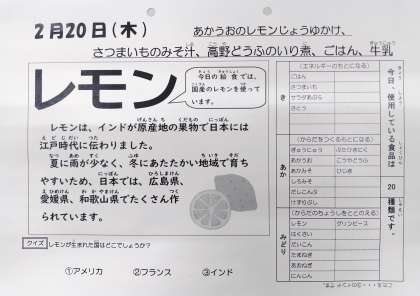 2月20日(木)
あかうおのレモンじょうゆかけ、
さつまいものみそ汁、高野どうふのいり煮、ごはん、牛乳
レモン
今日の給食では、
国産のレモンを使って
います。
レモンは、インドが原産地の果物で日本には
江戸時代に伝わりました。
夏に雨が少なく、冬にあたたかい地域で育ち
やすいため、日本では、広島県、
愛媛県、和歌山県でたくさん作
られています。
クイズ レモンが生まれた国はどこでしょうか?
①アメリカ ②フランス ③インド
今日、使用している食品は
20
種類です。
き
(エネルギーのもとになる)
ごはん
さつまいも
サラダあぶら
さとう
あか
(からだをつくるもとになる)
ぎゅうにゅう ぶたひきにく
あかうお こうやどうふ
あぶらあげ ひじき
しろみそ
だしこんぶ
けずりぶし
みどり
(からだのちょうしをととのえる)
レモン グリンピース
はくさい
だいこん
たまねぎ
あおねぎ
にんじん